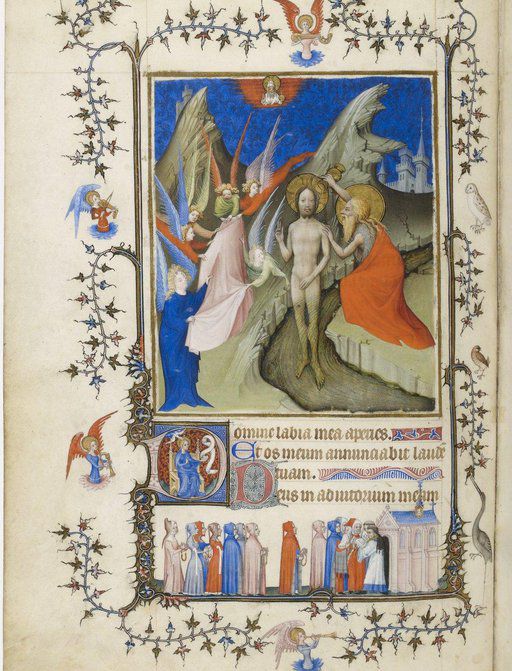 Domine labia mea aperies.
Et os meum annunciabit laudē
tuam.
Deus in adiutorium meum